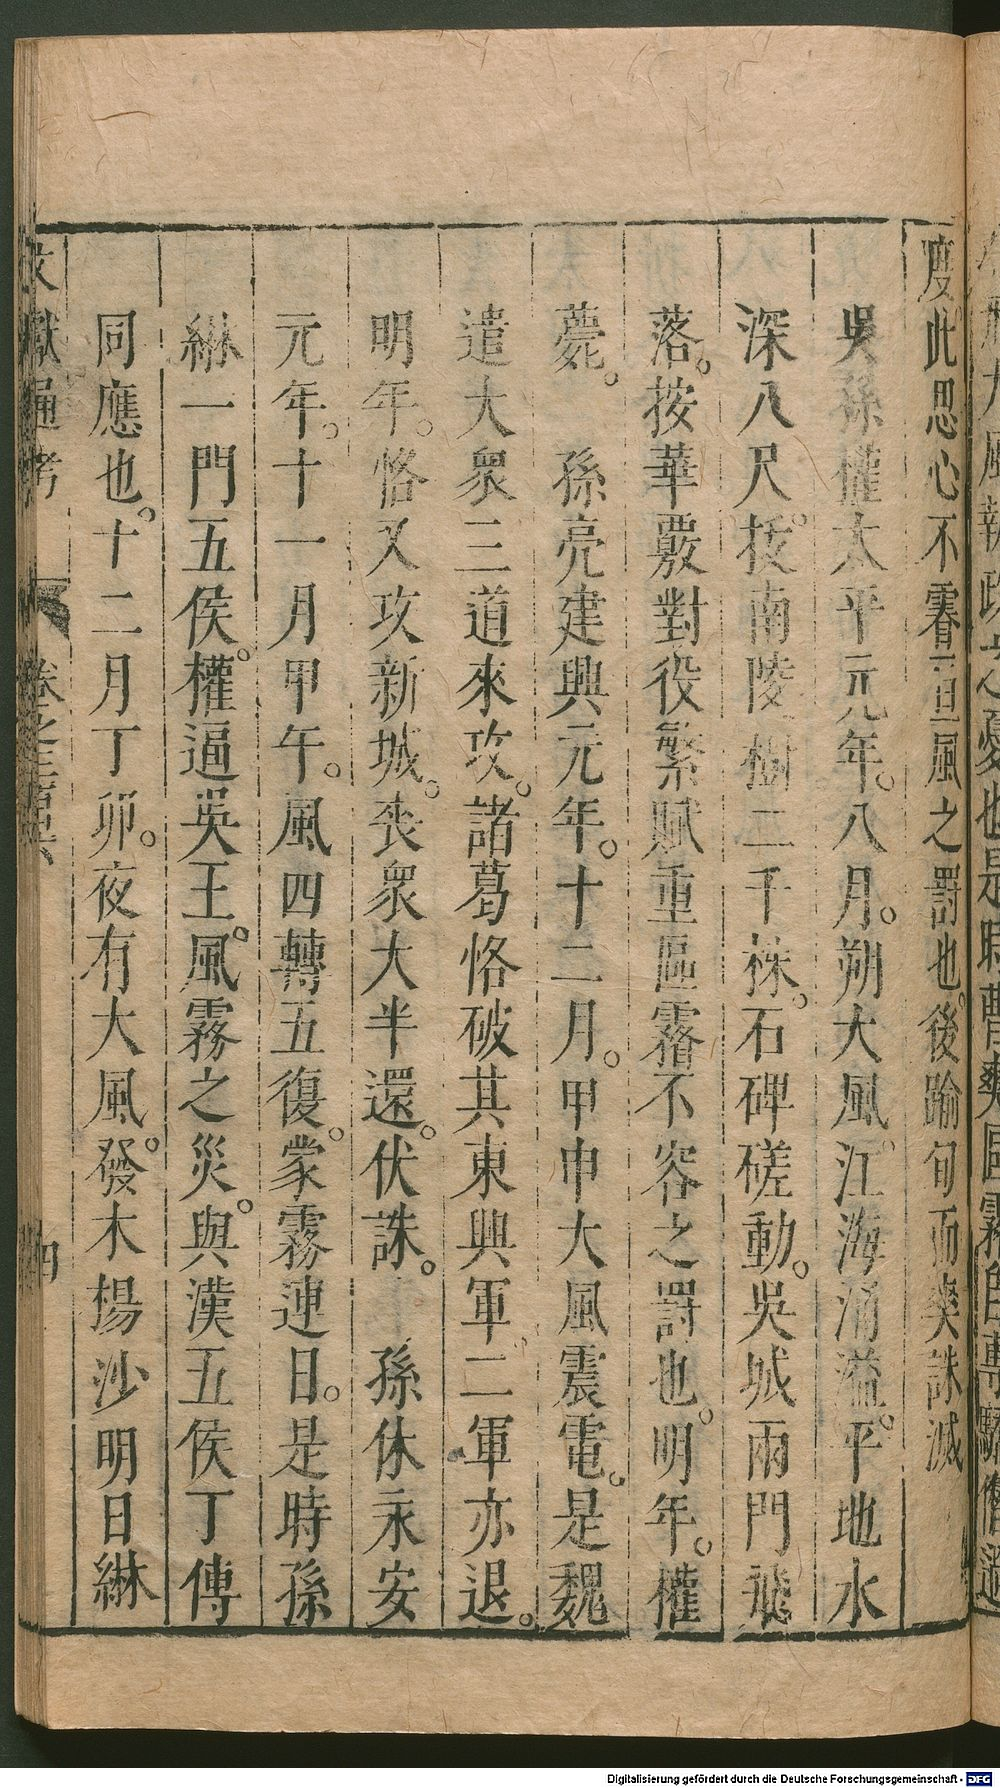 度此思心不霿一亘風之罰也後踰旬而爽誅滅
吳孫權太平元年。八月。朔大風。江海涌溢。平地水
深八尺。拔南陵樹二千株。石碑磋動。吳城兩門飛
落。按華覈對役繁賦重區霿不容之罰也。明年。權
薨。 孫亮建興元年。十二月。甲申大風震電。是魏
遣大衆三道來攻。諸葛恪破其東興軍二軍亦退。
明年。恪又攻新城。喪衆大半還。伏誅。 孫休永安
元年。十一月甲午。風四轉五復。蒙霧連日。是時孫
綝一門五侯。權逼吳王。風霧之災。與漢五侯丁傅
同應也。十二月丁卯。夜有大風。發木揚沙明日綝
文獻通考 卷之三百六 四
Digitalisierung gefördert durch die Deutsche Forschungsgemeinschaft - DFG